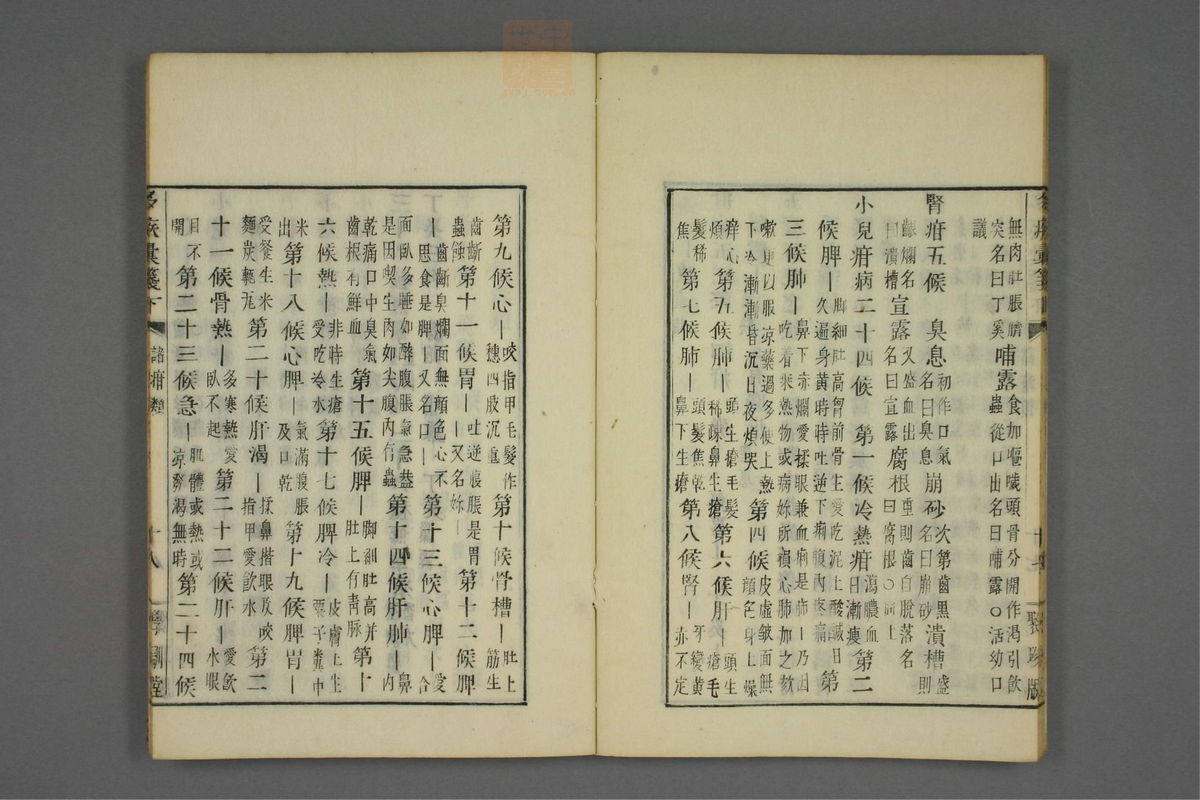 無肉肚脹臍突名曰丁奚哺露食加嘔噦頭骨分開作渴引飲蟲從口出名曰哺露○活幼口議
腎疳五候 臭息初作口氣名曰臭息崩砂次第齒黑名曰崩砂潰槽盛則齦爛名曰潰槽宣露又盛血出名曰宣露腐根重則齒自脫落名曰腐根○同上
小兒疳病二十四候 第一候冷熱疳瀉膿血日漸瘦第二
候脾｜脚細肚高胷前骨生愛吃泥土酸鹹日久遍身黃時時吐逆下痢腹內疼痛第
三候肺｜鼻下赤爛愛揉眼兼血痢是肺｜乃因吃着熱物或病妳所損心肺加之欬
嗽更以服涼藥過多便上熱下冷漸漸昏沉日夜煩哭第四候皮虛皺面無顏色身上燥
痒心煩第五候肺｜頭生瘡毛髮稀疎鼻生瘡第六候肝｜頭生瘡毛
髮稀焦第七候肺｜頭髮焦乾鼻下生瘡第八候腎｜牙變黃赤不定
醫
版
第九候心｜咬指甲毛髮作穗四肢沉重第十候骨槽｜肚上筋生
齒齗蟲蝕第十一候胃｜吐逆腹脹是胃｜又名妳｜第十二候脾
｜齒齗臭爛面無顏色心不思食是脾｜又名口｜第十三候心脾｜愛合
面臥多睡如醉腹脹氣急蓋是因喫生肉如尖腹內有蟲第十四候肝肺｜鼻內
乾痛口中臭氣齒根有鮮血第十五候脾｜脚細肚高并肚上有青脉第十
六候熱｜非時生瘡愛吃冷水第十七候脾冷｜皮膚上生粟子糞中
米出第十八候心脾｜氣滿腹脹及口乾第十九候脾胃｜
愛餐生米麵炭輒瓦第二十候肝渴｜揉鼻揩眼及咬指甲愛飲水第二
十一候骨熱｜多寒熱愛臥不起第二十二候肝｜愛飲水眼
目不開第二十三候急｜肌體或熱或涼發渴無時第二十四候
諸疳類
十八
堂